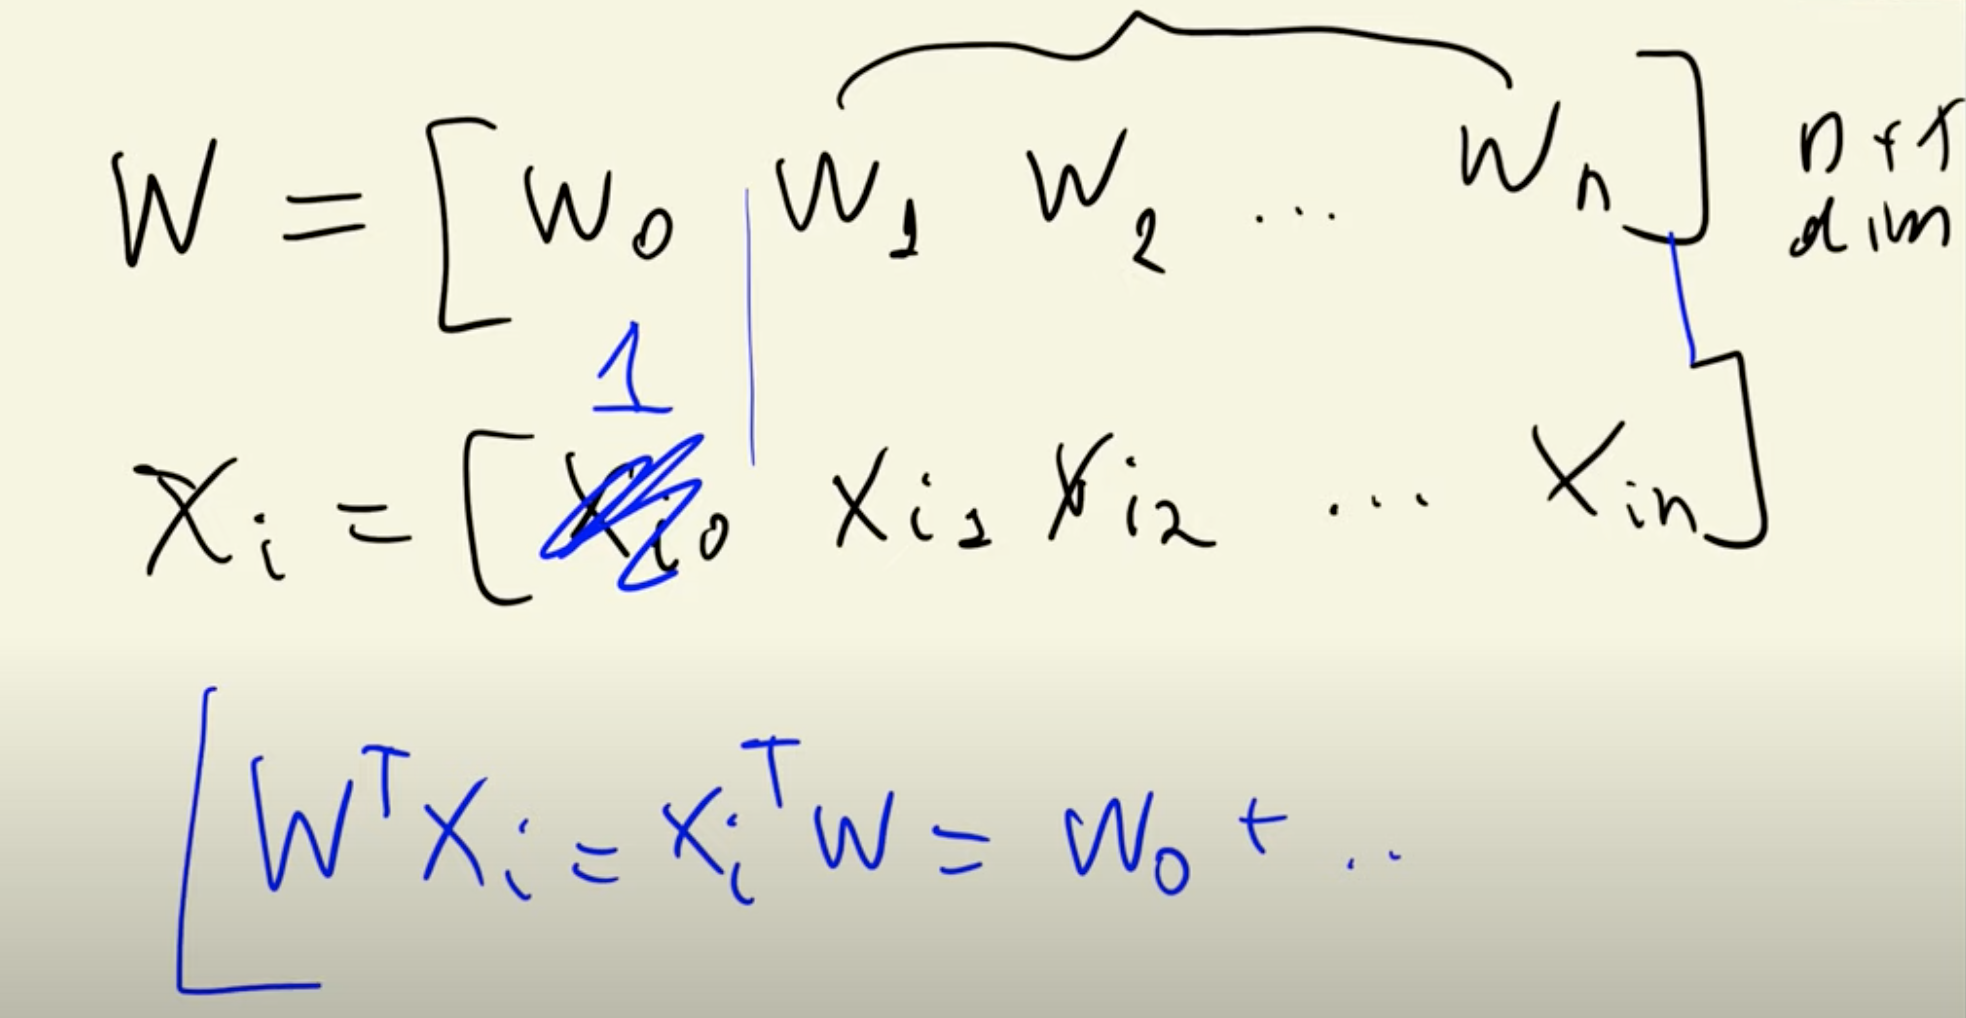 W = [ W₀ W₁ W₂ ... Wₙ ] n+1
dim
1
Xᵢ = [ Xᵢ₀ Xᵢ₁ Xᵢ₂ ... Xᵢₙ ]
[ Wᵀ Xᵢ = Xᵢᵀ W = W₀ + ...